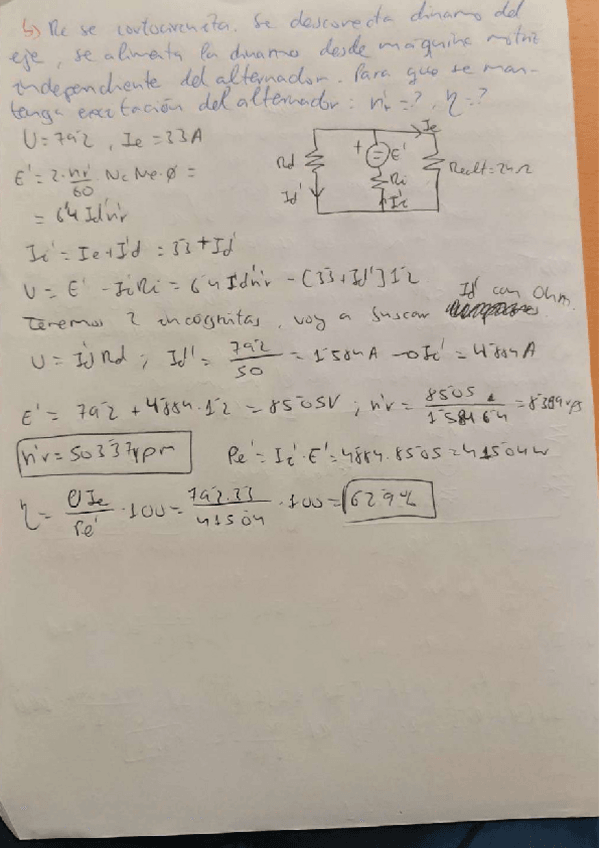 b) Re se cortocircuita. Se desconecta dinamo del
eje, se alimenta la dinamo desde máquina motriz
independiente del alternador. Para que se man-
tenga excitación del alternador: n'r=?, η=?
U=79'2, Ie=33A
E'=2·n'r/60 Nc Me·Ø=
=6'4 Id'n'r
Ii'=Ie+I'd=33+Id'
U=E'-IiRi=6'4Id'n'r-(33+Id')1'2
Tenemos 2 incógnitas, voy a buscar Id' con Ohm.
U=I'd Rd; Id'=79'2/50=1'584A→Ii'=4'884A
E'=79'2+4'884·1'2=85'05V; n'r=85'05/1'58·6'4=8'389rps
n'r=503'37rpm
Pe'=Ii'·E'=4'884·85'05=415'04w
η=UIe/Pe'·100=79'2·3'3/415'04·100=62'9%
Ie
Rd
+
E'
Ri
Id'
Ii'
Rcalt=24Ω